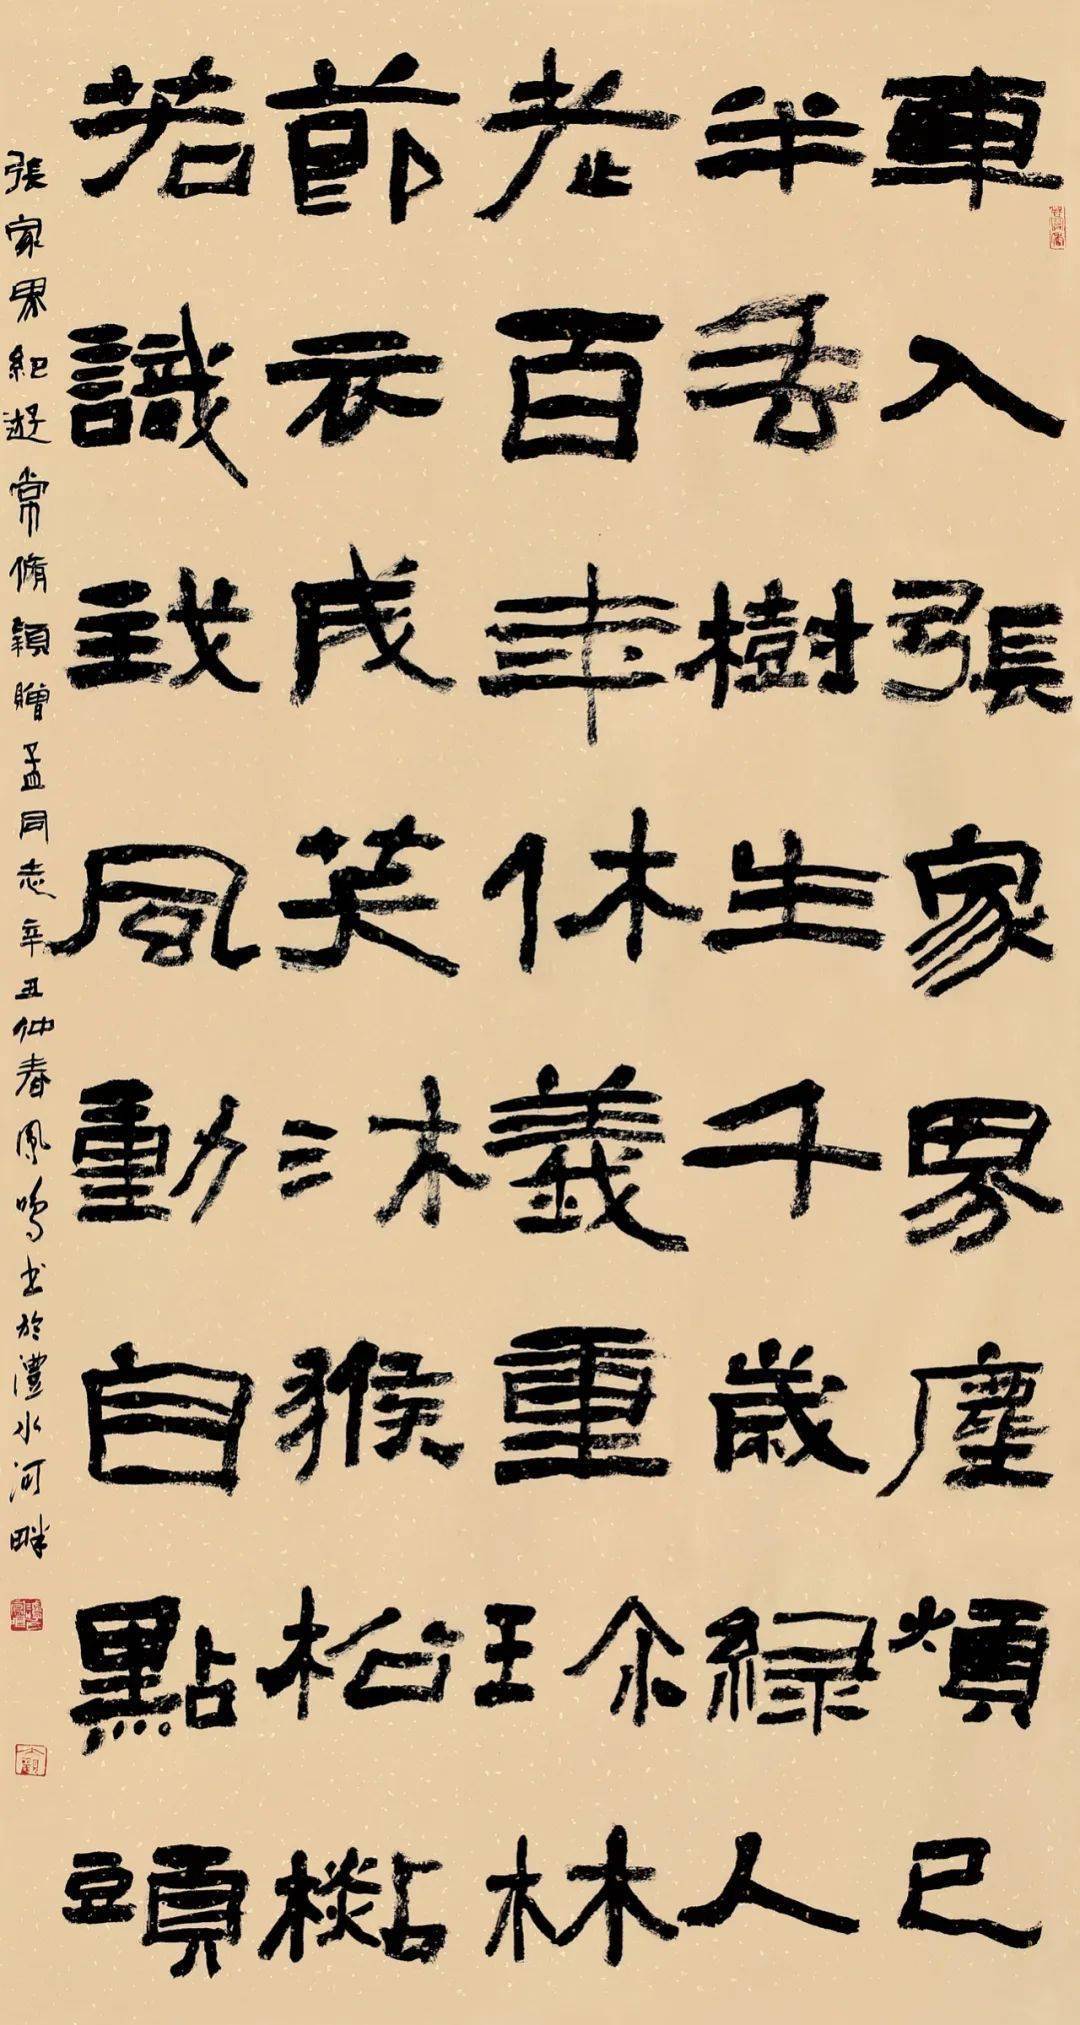 車入張家界塵煩已
半丟樹生千歲綠人
老百年休義重珍林
節衣成笑沐猴松
若識我風動自點頭
張家界紀遊常脩穎贈孟同志辛丑仲春鳳鳴书於澧水河畔